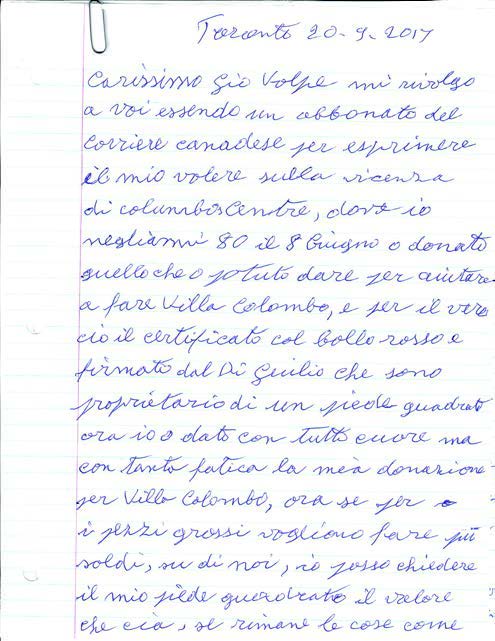 Toronto 20-9-2017
Carissimo Gio Volpe mi rivolgo
a voi essendo un abbonato del
Corriere canadese per esprimere
il mio volere sulla vicenza
di columbos Centre, dove io
negli anni 80 il 8 Giugno o donato
quello che o potuto dare per aiutare
a fare Villa Colombo, e per il vero
cio il certificato col bollo rosso e
firmato dal Di Giulio che sono
proprietario di un piede quadrato
ora io o dato con tutto cuore ma
con tanta fatica la mea donazione
per Villa Colombo, ora se per
i pezzi grossi vogliono fare più
soldi, su di noi, io posso chiedere
il mio piede quadrato il valore
che cià, se rimane le cose come